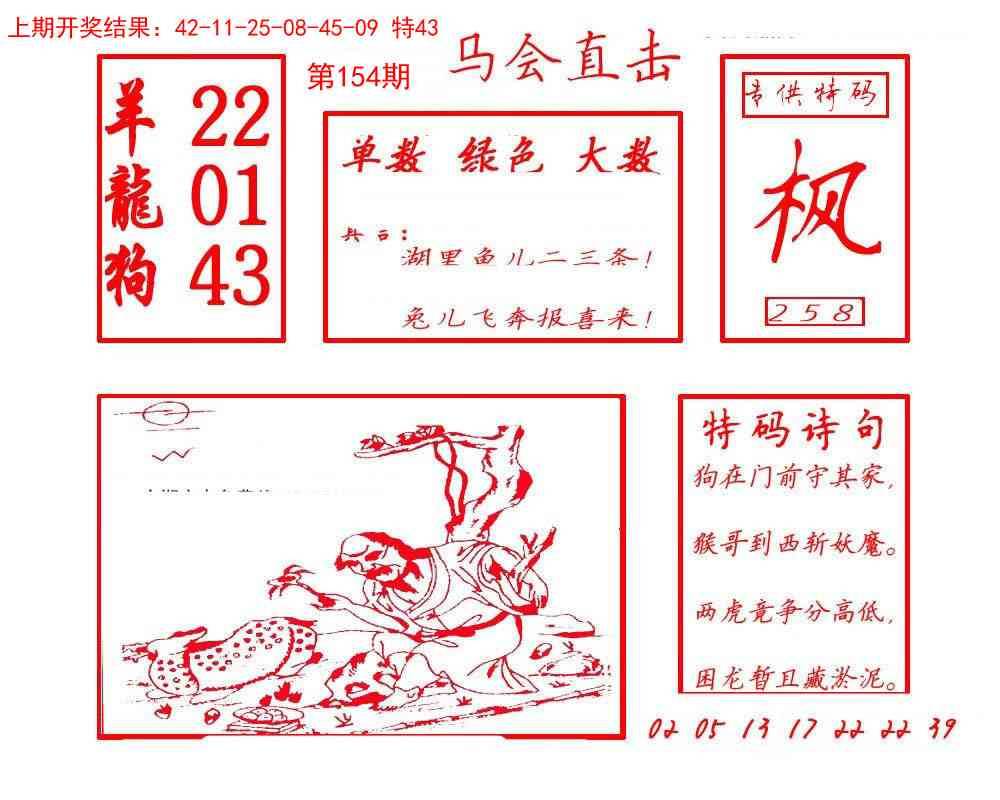 上期开奖结果：42-11-25-08-45-09 特43
马会直击
第154期
羊 22
龍 01
狗 43
单数 绿色 大数
湖里鱼儿二三条！
兔儿飞奔报喜来！
专供特码
枫
258
特码诗句
狗在门前守其家,
猴哥到西斩妖魔。
两虎竞争分高低,
困龙暂且藏淤泥。
02 05 13 17 22 22 39